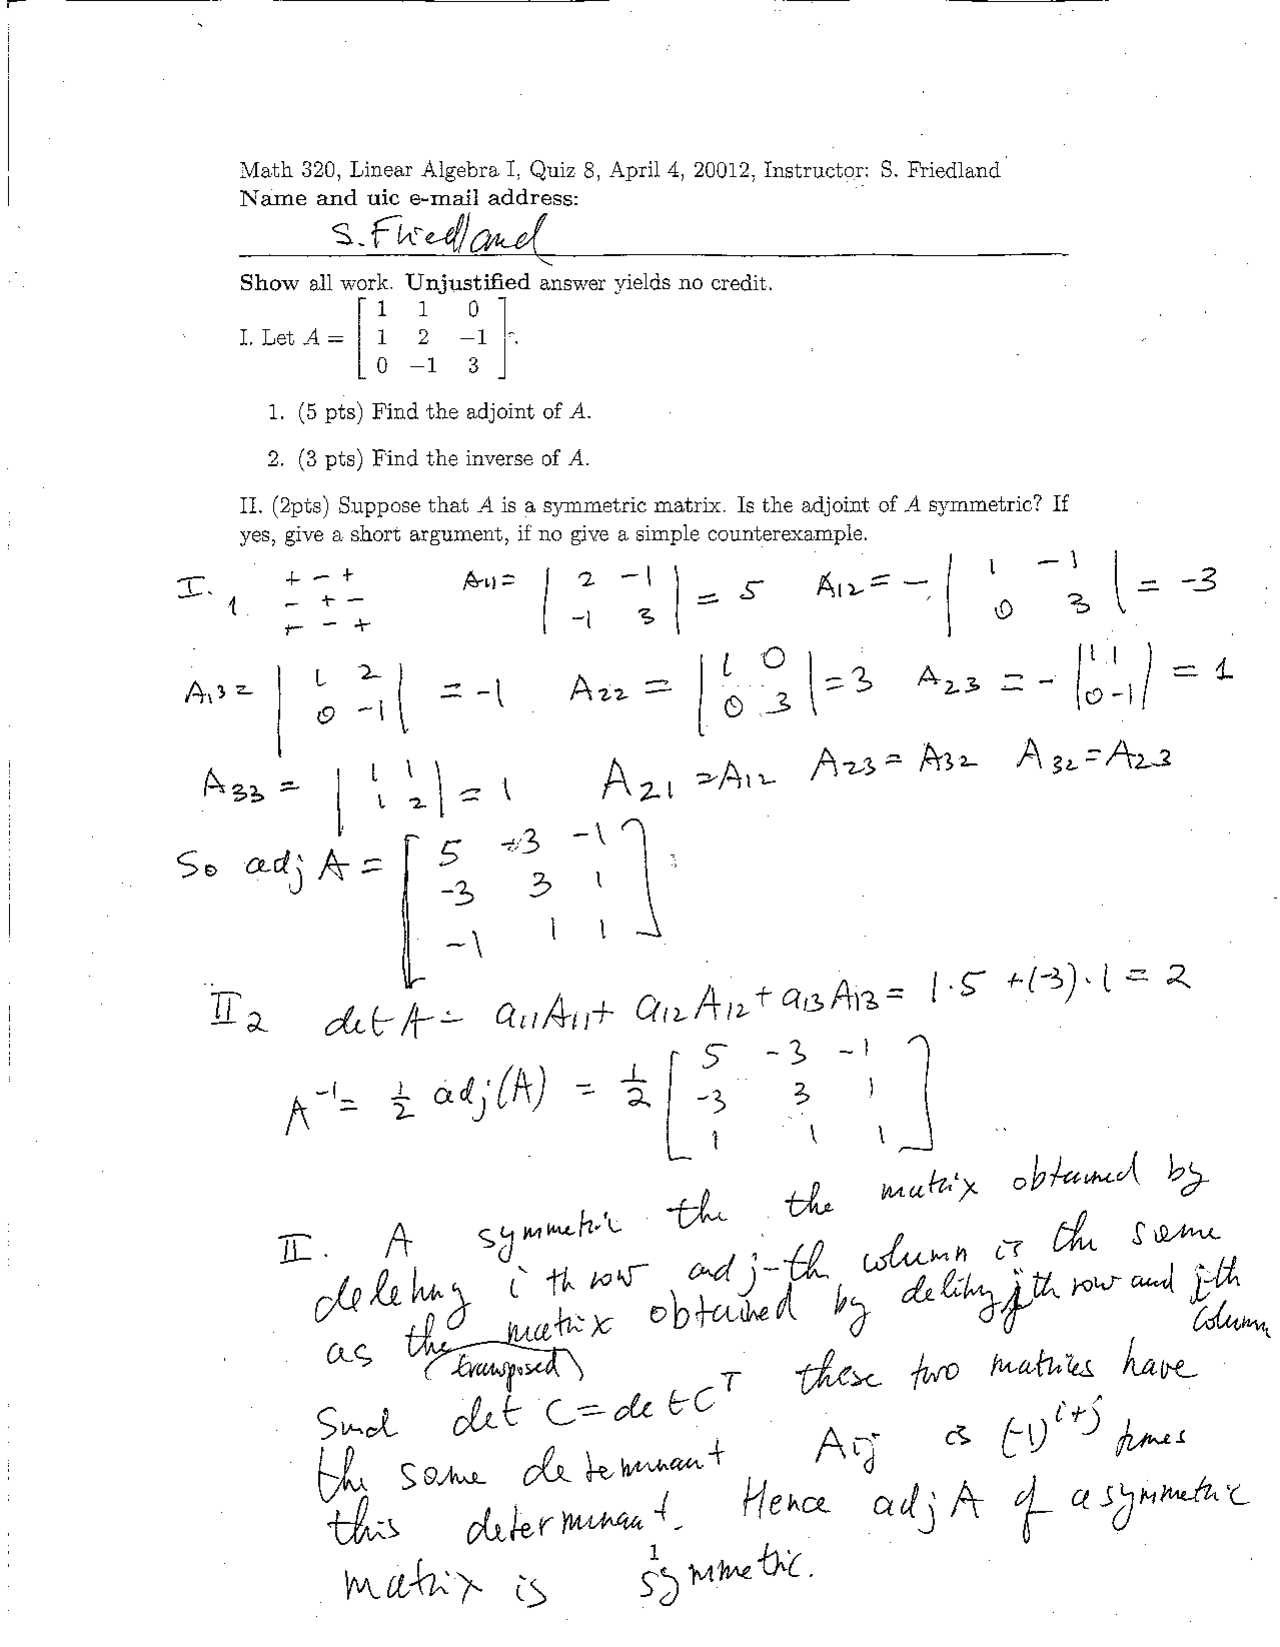 Math 320, Linear Algebra I, Quiz 8, April 4, 20012, Instructor: S. Friedland
Name and uic e-mail address:
S. Friedland
Show all work. Unjustified answer yields no credit.
I. Let A = [ 1 1 0
1 2 −1
0 −1 3 ].
1. (5 pts) Find the adjoint of A.
2. (3 pts) Find the inverse of A.
II. (2pts) Suppose that A is a symmetric matrix. Is the adjoint of A symmetric? If
yes, give a short argument, if no give a simple counterexample.
I. 1. + − +
− + −
+ − +
A11 = | 2 −1
−1 3 | = 5 A12 = − | 1 −1
0 3 | = −3
A13 = | 1 2
0 −1 | = −1 A22 = | 1 0
0 3 | = 3 A23 = − | 1 1
0 −1 | = 1
A33 = | 1 1
1 2 | = 1 A21 = A12 A23 = A32 A32 = A23
So adj A = [ 5 −3 −1
−3 3 1
−1 1 1 ]
II 2 det A = a11A11 + a12A12 + a13A13 = 1·5 + (−3)·1 = 2
A⁻¹ = 1/2 adj(A) = 1/2 [ 5 −3 −1
−3 3 1
1 1 1 ]
II. A symmetric the the matrix obtained by
deleting i th row and j-th column is the same
as the matrix obtained by deliting jth row and ith
column
(transposed)
det C = det Cᵀ these two matrices have
the same determinant Aij is (−1)^(i+j) times
this determinant. Hence adj A of a symmetric
matrix is symmetric.
1